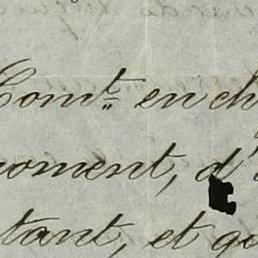 Comt. en ch
oment, d'
tant, et q